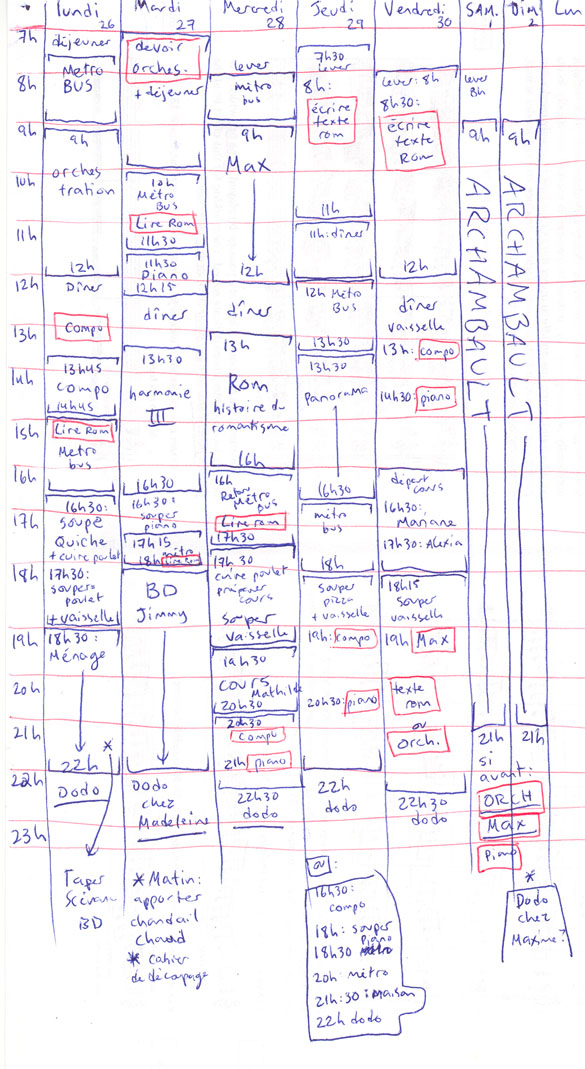 lundi
26
Mardi
27
Mercredi
28
Jeudi
29
Vendredi
30
SAM.
1
Dim
2
Lun
7h
8h
9h
10h
11h
12h
13h
14h
15h
16h
17h
18h
19h
20h
21h
22h
23h
déjeuner
Metro
BUS
9h
orches
tration
12h
Dîner
Compo
13h45
Compo
14h45
Lire Rom
Metro
bus
16h30:
soupe
Quiche
+ cuire poulet
17h30:
souper
poulet
+ vaisselle
18h30:
Ménage
*
22h
Dodo
Taper
BD
devoir
orches.
+ déjeuner
10h
Métro
Bus
Lire Rom
11h30
11h30
Piano
12h15
dîner
13h30
harmonie
III
16h30
16h30:
souper
piano
17h15
métro
18h Lire Rom
BD
Jimmy
Dodo
chez
Madeleine
* Matin:
apporter
chandail
chaud
* Cahier
de découpage
lever
métro
bus
9h
Max
12h
dîner
13h
Rom
histoire du
romantisme
16h
16h
Retour
Métro
Bus
Lire rom
17h30
17h30
cuire poulet
préparer
cours
souper
vaisselle
19h30
cours
Mathilde
20h30
20h30
Compo
21h piano
22h30
dodo
7h30
lever
8h:
écrire
texte
rom
11h
11h: dîner
12h Métro
Bus
13h30
13h30
Panorama
16h30
métro
bus
18h
souper
pizza
+ vaisselle
19h: compo
20h30: piano
22h
dodo
ou:
16h30:
compo
18h: souper
piano
18h30
20h: métro
21h:30: maison
22h dodo
lever: 8h
8h30:
écrire
texte
Rom
12h
dîner
vaisselle
13h: compo
14h30: piano
départ
cours
16h30:
Mariane
17h30: Alexia
18h15
souper
vaisselle
19h Max
texte
rom
ou
Orch.
22h30
dodo
lever
8h
9h
ARCHAMBAULT
21h
si
avant:
ORCH
Max
Piano
9h
ARCHAMBAULT
21h
*
Dodo
chez
Maxime?